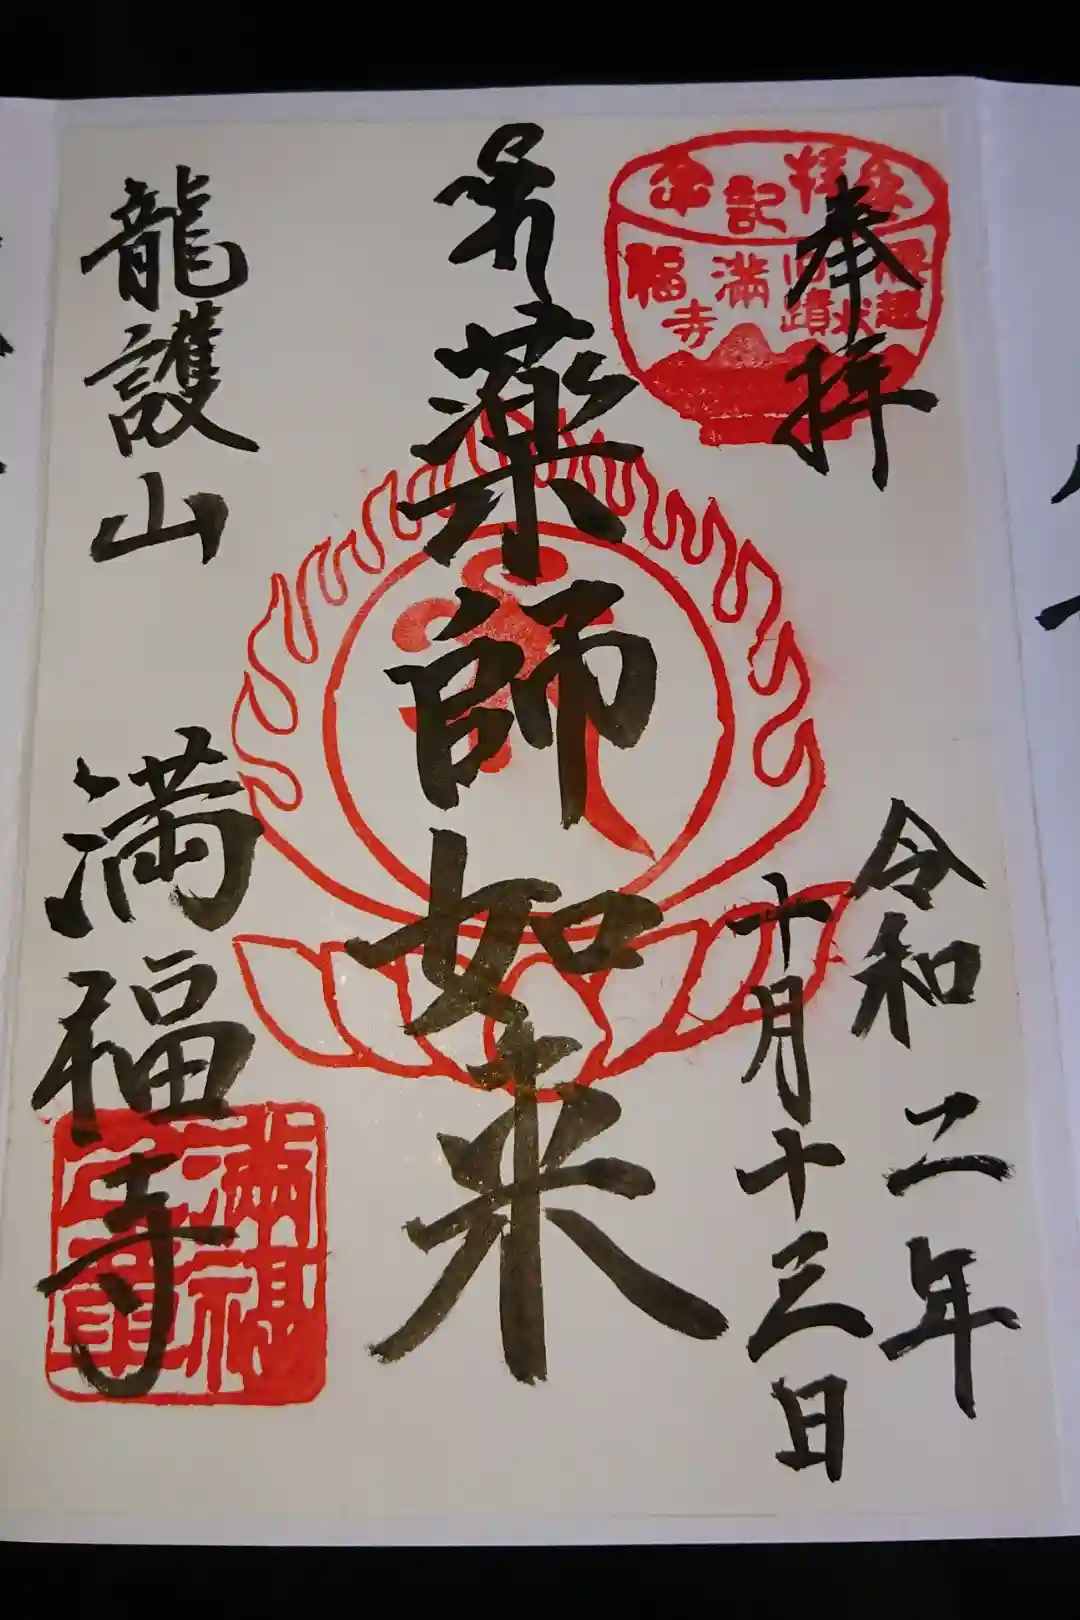 奉拝
令和二年
十月十三日
薬師如来
龍護山 満福寺
参拝記念
義経旧蹟
満福寺
満福寺章